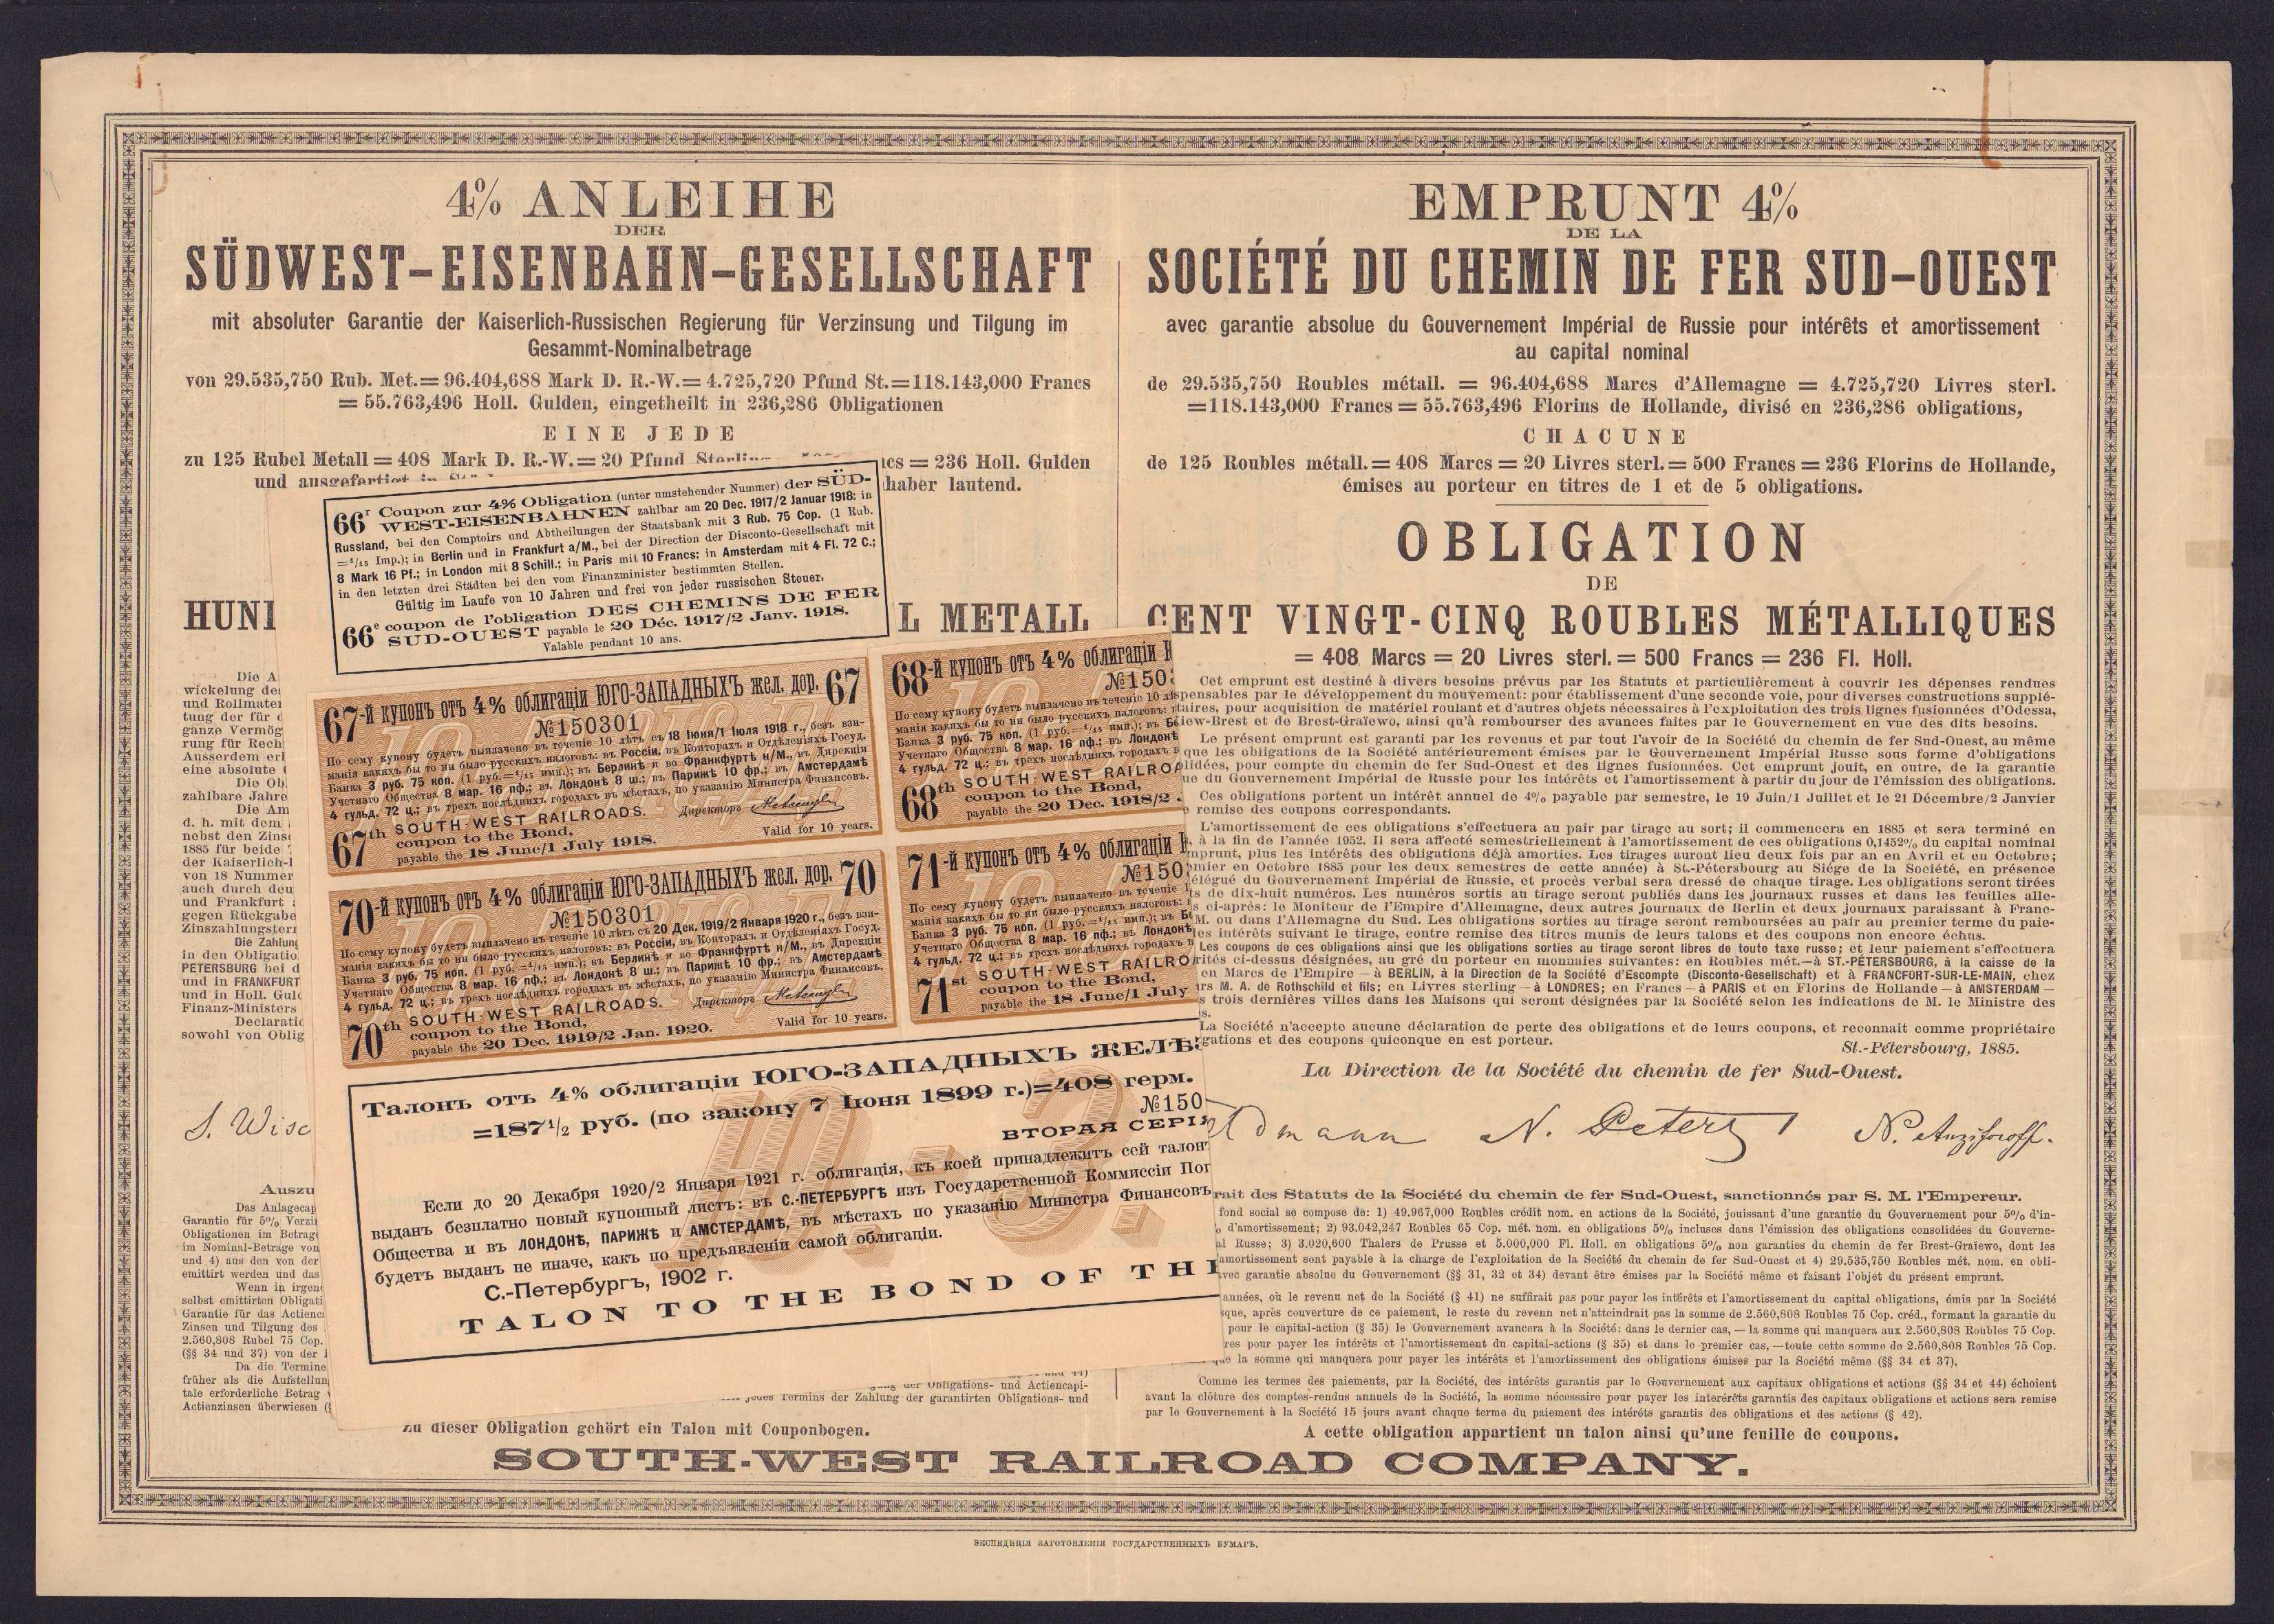 4% ANLEIHE
DER
SÜDWEST-EISENBAHN-GESELLSCHAFT
mit absoluter Garantie der Kaiserlich-Russischen Regierung für Verzinsung und Tilgung im
Gesammt-Nominalbetrage
von 29.535,750 Rub. Met. = 96.404,688 Mark D. R.-W. = 4.725,720 Pfund St. = 118.143,000 Francs
= 55.763,496 Holl. Gulden, eingetheilt in 236,286 Obligationen
EINE JEDE
zu 125 Rubel Metall = 408 Mark D. R.-W. = 20 Pfund Sterling = 236 Holl. Gulden
und ausgefertigt in haber lautend.
HUNI L METALL
Die A
wickelung de
und Rollmater
tung der für d
ganze Vermög
rung für Rech
Ausserdem erl
eine absolute
Die Ob
zahlbare Jahre
Die Am
d. h. mit dem
nebst den Zins
1885 für beide
der Kaiserlich-
von 18 Nummer
auch durch deu
und Frankfurt
gegen Rückgabe
Zinszahlungster
Die Zahlung
in den Obligatio
PETERSBURG bei d
und in FRANKFURT
und in Holl. Guld
Finanz-Ministers
Declaratic
sowohl von Oblig
S. Wisc
Auszu
Das Anlagecap
Garantie für 5% Verzi
Obligationen im Betrag
im Nominal-Betrage von
und 4) aus den von der
emittirt werden und das
Wenn in irgen
selbst emittirten Obligati
Garantie für das Actienc
Zinsen und Tilgung des
2.560,808 Rubel 75 Cop.
(§§ 34 und 37) von der
Da die Termine
früher als die Aufstellun
tale erforderliche Betrag
Actienzinsen überwiesen (§
und 44)
der Obligations- und Actiencapi-
jedes Termins der Zahlung der garantirten Obligations- und
zu dieser Obligation gehört ein Talon mit Couponbogen.
66r Coupon zur 4% Obligation (unter umstehender Nummer) der SÜD-
WEST-EISENBAHNEN zahlbar am 20 Dec. 1917/2 Januar 1918: in
Russland, bei den Comptoirs und Abtheilungen der Staatsbank mit 3 Rub. 75 Cop. (1 Rub.
=1/15 Imp.); in Berlin und in Frankfurt a/M., bei der Direction der Disconto-Gesellschaft mit
8 Mark 16 Pf.; in London mit 8 Schill.; in Paris mit 10 Francs; in Amsterdam mit 4 Fl. 72 C.;
in den letzten drei Städten bei den vom Finanzminister bestimmten Stellen.
Gültig im Laufe von 10 Jahren und frei von jeder russischen Steuer.
66e coupon de l'obligation DES CHEMINS DE FER
SUD-OUEST payable le 20 Déc. 1917/2 Janv. 1918.
Valable pendant 10 ans.
67-й купонъ отъ 4% облигаціи ЮГО-ЗАПАДНЫХЪ жел. дор. 67
№150301
По сему купону будетъ выплачено въ теченіе 10 лѣтъ съ 18 Іюня/1 Іюля 1918 г., безъ взи-
манія какихъ бы то ни было русскихъ налоговъ: въ Россіи, въ Конторахъ и Отдѣленіяхъ Госуд.
Банка 3 руб. 75 коп. (1 руб.=1/15 имп.); въ Берлинѣ и во Франкфуртѣ н/М., въ Дирекціи
Учетнаго Общества 8 мар. 16 пф.; въ Лондонѣ 8 ш.; въ Парижѣ 10 фр.; въ Амстердамѣ
4 гульд. 72 ц.; въ трехъ послѣднихъ городахъ въ мѣстахъ, по указанію Министра Финансовъ.
SOUTH-WEST RAILROADS. Директоръ
67th coupon to the Bond,
payable the 18 June/1 July 1918. Valid for 10 years.
68-й купонъ отъ 4% облигаціи
№150
По сему купону будетъ выплачено въ теченіе 10 лѣ
манія какихъ бы то ни было русскихъ налоговъ: въ
Банка 3 руб. 75 коп. (1 руб.=1/15 имп.); въ Бе
Учетнаго Общества 8 мар. 16 пф.; въ Лондонѣ
4 гульд. 72 ц.; въ трехъ послѣднихъ городахъ в
SOUTH-WEST RAILRO
68th coupon to the Bond,
payable the 20 Dec. 1918/2
70-й купонъ отъ 4% облигаціи ЮГО-ЗАПАДНЫХЪ жел. дор. 70
№150301
По сему купону будетъ выплачено въ теченіе 10 лѣтъ съ 20 Дек. 1919/2 Января 1920 г., безъ взи-
манія какихъ бы то ни было русскихъ налоговъ: въ Россіи, въ Конторахъ и Отдѣленіяхъ Госуд.
Банка 3 руб. 75 коп. (1 руб.=1/15 имп.); въ Берлинѣ и во Франкфуртѣ н/М., въ Дирекціи
Учетнаго Общества 8 мар. 16 пф.; въ Лондонѣ 8 ш.; въ Парижѣ 10 фр.; въ Амстердамѣ
4 гульд. 72 ц.; въ трехъ послѣднихъ городахъ въ мѣстахъ, по указанію Министра Финансовъ.
SOUTH-WEST RAILROADS. Директоръ
70th coupon to the Bond,
payable the 20 Dec. 1919/2 Jan. 1920. Valid for 10 years.
71-й купонъ отъ 4% облигаціи
№150
По сему купону будетъ выплачено въ теченіе 1
манія какихъ бы то ни было русскихъ налоговъ:
Банка 3 руб. 75 коп. (1 руб.=1/15 имп.); въ Бе
Учетнаго Общества 8 мар. 16 пф.; въ Лондонѣ
4 гульд. 72 ц.; въ трехъ послѣднихъ городахъ в
SOUTH-WEST RAILRO
71st coupon to the Bond,
payable the 18 June/1 July
Талонъ отъ 4% облигаціи ЮГО-ЗАПАДНЫХЪ ЖЕЛѢЗ
=187 1/2 руб. (по закону 7 Іюня 1899 г.)=408 герм.
№150
ВТОРАЯ СЕРІЯ
Если до 20 Декабря 1920/2 Января 1921 г. облигація, къ коей принадлежитъ сей талон
выданъ безплатно новый купонный листъ: въ С.-ПЕТЕРБУРГѢ изъ Государственной Коммиссіи Пог
Общества и въ ЛОНДОНѢ, ПАРИЖѢ и АМСТЕРДАМѢ, въ мѣстахъ по указанію Министра Финансовъ
будетъ выданъ не иначе, какъ по предъявленіи самой облигаціи.
С.-Петербургъ, 1902 г.
TALON TO THE BOND OF TH
EMPRUNT 4%
DE LA
SOCIÉTÉ DU CHEMIN DE FER SUD-OUEST
avec garantie absolue du Gouvernement Impérial de Russie pour intérêts et amortissement
au capital nominal
de 29.535,750 Roubles métall. = 96.404,688 Marcs d'Allemagne = 4.725,720 Livres sterl.
=118.143,000 Francs = 55.763,496 Florins de Hollande, divisé en 236,286 obligations,
CHACUNE
de 125 Roubles métall. = 408 Marcs = 20 Livres sterl. = 500 Francs = 236 Florins de Hollande,
émises au porteur en titres de 1 et de 5 obligations.
OBLIGATION
DE
CENT VINGT-CINQ ROUBLES MÉTALLIQUES
= 408 Marcs = 20 Livres sterl. = 500 Francs = 236 Fl. Holl.
Cet emprunt est destiné à divers besoins prévus par les Statuts et particulièrement à couvrir les dépenses rendues
spensables par le développement du mouvement: pour établissement d'une seconde voie, pour diverses constructions supplé-
taires, pour acquisition de matériel roulant et d'autres objets nécessaires à l'exploitation des trois lignes fusionnées d'Odessa,
iew-Brest et de Brest-Graïewo, ainsi qu'à rembourser des avances faites par le Gouvernement en vue des dits besoins.
Le présent emprunt est garanti par les revenus et par tout l'avoir de la Société du chemin de fer Sud-Ouest, au même
que les obligations de la Société antérieurement émises par le Gouvernement Impérial Russe sous forme d'obligations
lidées, pour compte du chemin de fer Sud-Ouest et des lignes fusionnées. Cet emprunt jouit, en outre, de la garantie
ue du Gouvernement Impérial de Russie pour les intérêts et l'amortissement à partir du jour de l'émission des obligations.
Ces obligations portent un intérêt annuel de 4% payable par semestre, le 19 Juin/1 Juillet et le 21 Décembre/2 Janvier
e remise des coupons correspondants.
L'amortissement de ces obligations s'effectuera au pair par tirage au sort; il commencera en 1885 et sera terminé en
, à la fin de l'année 1952. Il sera affecté semestriellement à l'amortissement de ces obligations 0,1452% du capital nominal
mprunt, plus les intérêts des obligations déjà amorties. Les tirages auront lieu deux fois par an en Avril et en Octobre;
mier en Octobre 1885 pour les deux semestres de cette année) à St.-Pétersbourg au Siége de la Société, en présence
élégué du Gouvernement Impérial de Russie, et procès verbal sera dressé de chaque tirage. Les obligations seront tirées
ts de dix-huit numéros. Les numéros sortis au tirage seront publiés dans les journaux russes et dans les feuilles alle-
s ci-après: le Moniteur de l'Empire d'Allemagne, deux autres journaux de Berlin et deux journaux paraissant à Franc-
M. ou dans l'Allemagne du Sud. Les obligations sorties au tirage seront remboursées au pair au premier terme du paie-
les intérêts suivant le tirage, contre remise des titres munis de leurs talons et des coupons non encore échus.
Les coupons de ces obligations ainsi que les obligations sorties au tirage seront libres de toute taxe russe; et leur paiement s'effectuera
rités ci-dessus désignées, au gré du porteur en monnaies suivantes: en Roubles mét.—à ST.-PÉTERSBOURG, à la caisse de la
en Marcs de l'Empire — à BERLIN, à la Direction de la Société d'Escompte (Disconto-Gesellschaft) et à FRANCFORT-SUR-LE-MAIN, chez
rs M. A. de Rothschild et fils; en Livres sterling — à LONDRES; en Francs — à PARIS et en Florins de Hollande — à AMSTERDAM —
s trois dernières villes dans les Maisons qui seront désignées par la Société selon les indications de M. le Ministre des
s.
La Société n'accepte aucune déclaration de perte des obligations et de leurs coupons, et reconnait comme propriétaire
gations et des coupons quiconque en est porteur.
St.-Pétersbourg, 1885.
La Direction de la Société du chemin de fer Sud-Ouest.
dmann N. Peters N. Anziforoff.
rait des Statuts de la Société du chemin de fer Sud-Ouest, sanctionnés par S. M. l'Empereur.
fond social se compose de: 1) 49.967,000 Roubles crédit nom. en actions de la Société, jouissant d'une garantie du Gouvernement pour 5% d'in-
% d'amortissement; 2) 93.042,247 Roubles 65 Cop. mét. nom. en obligations 5% incluses dans l'émission des obligations consolidées du Gouverne-
al Russe; 3) 3.020,600 Thalers de Prusse et 5.000,000 Fl. Holl. en obligations 5% non garanties du chemin de fer Brest-Graïewo, dont les
amortissement sont payable à la charge de l'exploitation de la Société du chemin de fer Sud-Ouest et 4) 29.535,750 Roubles mét. nom. en obli-
avec garantie absolue du Gouvernement (§§ 31, 32 et 34) devant être émises par la Société même et faisant l'objet du présent emprunt.
années, où le revenu net de la Société (§ 41) ne suffirait pas pour payer les intérêts et l'amortissement du capital obligations, émis par la Société
sque, après couverture de ce paiement, le reste du revenu net n'atteindrait pas la somme de 2.560,808 Roubles 75 Cop. créd., formant la garantie du
pour le capital-action (§ 35) le Gouvernement avancera à la Société: dans le dernier cas, — la somme qui manquera aux 2.560,808 Roubles 75 Cop.
res pour payer les intérêts et l'amortissement du capital-actions (§ 35) et dans le premier cas, — toute cette somme de 2.560,808 Roubles 75 Cop.
que la somme qui manquera pour payer les intérêts et l'amortissement des obligations émises par la Société même (§§ 34 et 37).
Comme les termes des paiements, par la Société, des intérêts garantis par le Gouvernement aux capitaux obligations et actions (§§ 34 et 44) échoient
avant la clôture des comptes-rendus annuels de la Société, la somme nécessaire pour payer les interérêts garantis des capitaux obligations et actions sera remise
par le Gouvernement à la Société 15 jours avant chaque terme du paiement des intérêts garantis des obligations et des actions (§ 42).
A cette obligation appartient un talon ainsi qu'une feuille de coupons.
SOUTH-WEST RAILROAD COMPANY.
ЭКСПЕДИЦІЯ ЗАГОТОВЛЕНІЯ ГОСУДАРСТВЕННЫХЪ БУМАГЪ.